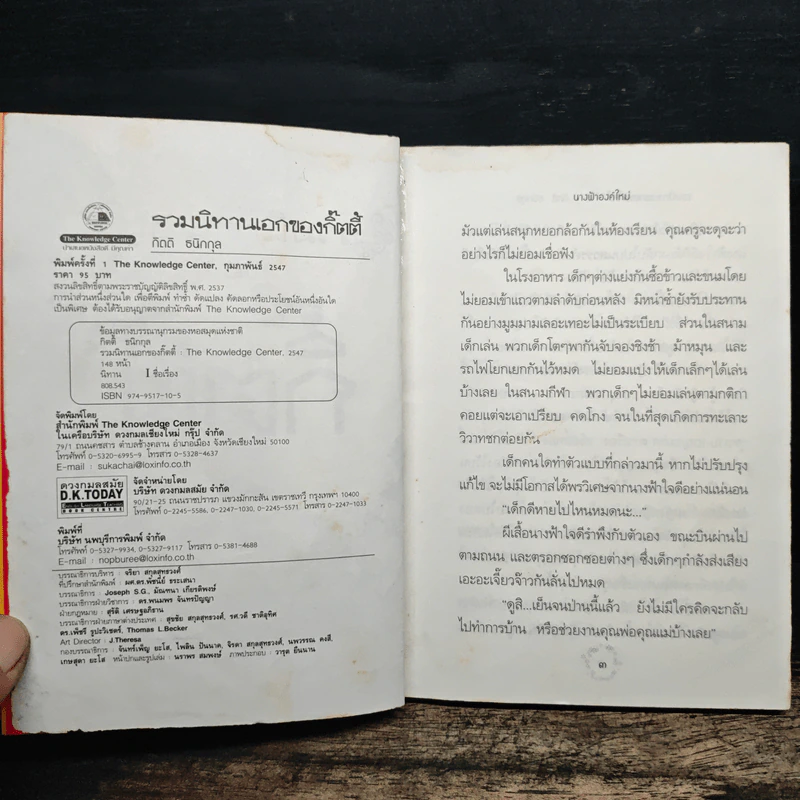 The Knowledge Center
นำเสนอหนังสือดี มีคุณค่า
รวมนิทานเอกของกิ๊ตตี้
กิตติ ธนิกกุล
พิมพ์ครั้งที่ 1 The Knowledge Center, กุมภาพันธ์ 2547
ราคา 95 บาท
สงวนลิขสิทธิ์ตามพระราชบัญญัติลิขสิทธิ์ พ.ศ. 2537
การนำส่วนหนึ่งส่วนใด เพื่อตีพิมพ์ ทำซ้ำ ดัดแปลง คัดลอกหรือประโยชน์อันหนึ่งอันใด
เป็นพิเศษ ต้องได้รับอนุญาตจากสำนักพิมพ์ The Knowledge Center
ข้อมูลทางบรรณานุกรมของหอสมุดแห่งชาติ
กิตติ ธนิกกุล
รวมนิทานเอกของกิ๊ตตี้ : The Knowledge Center, 2547
148 หน้า
นิทาน I ชื่อเรื่อง
808.543
ISBN 974-9517-10-5
จัดพิมพ์โดย
สำนักพิมพ์ The Knowledge Center
ในเครือบริษัท ดวงกมลเชียงใหม่ กรุ๊ป จำกัด
79/1 ถนนคชสาร ตำบลช้างคลาน อำเภอเมือง จังหวัดเชียงใหม่ 50100
โทรศัพท์ 0-5320-6995-9 โทรสาร 0-5328-4637
E-mail : sukachai@loxinfo.co.th
ดวงกมลสมัย
D.K.TODAY
BOOK CENTRE
จัดจำหน่ายโดย
บริษัท ดวงกมลสมัย จำกัด
90/21-25 ถนนราชปรารภ แขวงมักกะสัน เขตราชเทวี กรุงเทพฯ 10400
โทรศัพท์ 0-2245-5586, 0-2247-1030, 0-2245-5571 โทรสาร 0-2247-1033
พิมพ์ที่
บริษัท นพบุรีการพิมพ์ จำกัด
โทรศัพท์ 0-5327-9934, 0-5327-9117 โทรสาร 0-5381-4688
E-mail : nopburee@loxinfo.co.th
บรรณาธิการบริหาร : จริยา สกุลสุทธวงศ์
ที่ปรึกษาสำนักพิมพ์ : ผศ.ดร.พัชนีย์ ธระเสนา
บรรณาธิการ : Joseph S.G., มัณฑนา เกียรติพงษ์
บรรณาธิการฝ่ายวิชาการ : ดร.พนมพร จันทรปัญญา
ฝ่ายกฎหมาย : สุรีติ เศรษฐูอภิธาน
บรรณาธิการฝ่ายภาษาต่างประเทศ : สุขชัย สกุลสุทธวงศ์, รศ.วดี ชาติอุทิศ
ดร.เพ็ชรี รูปะวิเชตร์, Thomas L.Becker
Art Director : J.Theresa
กองบรรณาธิการ : จันทร์เพ็ญ ยะโส, ไพลิน ปันนาค, จิรดา สกุลสุทธวงศ์, นพวรรณ คงสี,
เกษสุดา ยะโส หน้าปกและรูปเล่ม : นราพร สมพงษ์ ภาพประกอบ : วารุต ยืนนาน
นางฟ้าองค์ใหม่
มัวแต่เล่นสนุกหยอกล้อกันในห้องเรียน คุณครูจะดุจะว่า
อย่างไรก็ไม่ยอมเชื่อฟัง
ในโรงอาหาร เด็กๆต่างแย่งกันซื้อข้าวและขนมโดย
ไม่ยอมเข้าแถวตามลำดับก่อนหลัง มิหนำซ้ำยังรับประทาน
กันอย่างมูมมามเลอะเทอะไม่เป็นระเบียบ ส่วนในสนาม
เด็กเล่น พวกเด็กโตๆพากันจับจองชิงช้า ม้าหมุน และ
รถไฟโยกเยกกันไว้หมด ไม่ยอมแบ่งให้เด็กเล็กๆได้เล่น
บ้างเลย ในสนามกีฬา พวกเด็กๆไม่ยอมเล่นตามกติกา
คอยแต่จะเอาเปรียบ คดโกง จนในที่สุดเกิดการทะเลาะ
วิวาทชกต่อยกัน
เด็กคนใดทำตัวแบบที่กล่าวมานี้ หากไม่ปรับปรุง
แก้ไข จะไม่มีโอกาสได้พรวิเศษจากนางฟ้าใจดีอย่างแน่นอน
"เด็กดีหายไปไหนหมดนะ..."
ผีเสื้อนางฟ้าใจดีรำพึงกับตัวเอง ขณะบินผ่านไป
ตามถนน และตรอกซอกซอยต่างๆ ซึ่งเด็กๆกำลังส่งเสียง
เอะอะเจี๊ยวจ๊าวกันลั่นไปหมด
"ดูสิ...เย็นจนป่านนี้แล้ว ยังไม่มีใครคิดจะกลับ
ไปทำการบ้าน หรือช่วยงานคุณพ่อคุณแม่บ้างเลย"
๓